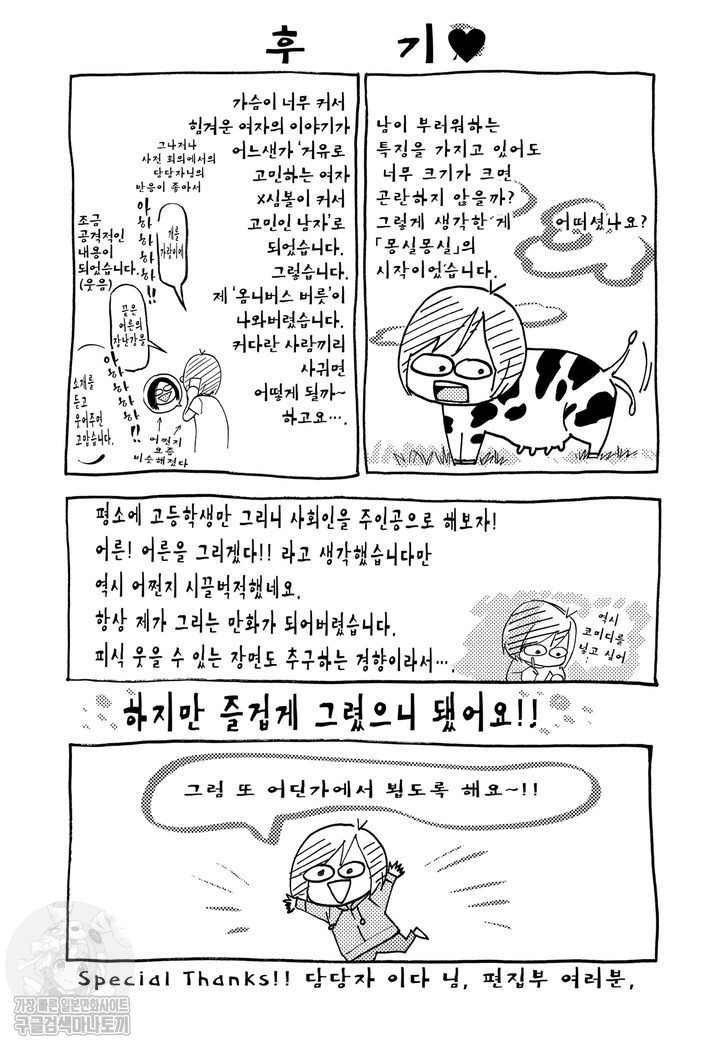 후 기♥
남이 부러워하는
특징을 가지고 있어도
너무 크기가 크면
곤란하지 않을까?
그렇게 생각한 게
「몽실몽실」의
시작이었습니다.
어떠셨나요?
가슴이 너무 커서
힘겨운 여자의 이야기가
어느샌가 '거유로
고민하는 여자
X심볼이 커서
고민인 남자'로
되었습니다.
그렇습니다.
제 '옴니버스 버릇'이
나와버렸습니다.
커다란 사람끼리
사귀면
어떻게 될까~
하고요….
그나저나
사전 회의에서의
담당자님의
반응이 좋아서
아하하하하!!
개를
가랑이에
조금
공격적인
내용이
되었습니다.
(웃음)
끝은
어른의
장난감을
아하하하하!!
소개를
듣고
웃어주면
고맙습니다.
어쩐지
요즘
비슷해졌다
평소에 고등학생만 그리니 사회인을 주인공으로 해보자!
어른! 어른을 그리겠다!! 라고 생각했습니다만
역시 어쩐지 시끌벅적했네요.
항상 제가 그리는 만화가 되어버렸습니다.
피식 웃을 수 있는 장면도 추구하는 경향이라서….
역시
코미디를
넣고 싶어
하지만 즐겁게 그렸으니 됐어요!!
그럼 또 어딘가에서 뵙도록 해요~!!
Special Thanks!! 담당자 이다 님, 편집부 여러분,
가장 빠른 일본만화사이트
구글검색마나토끼